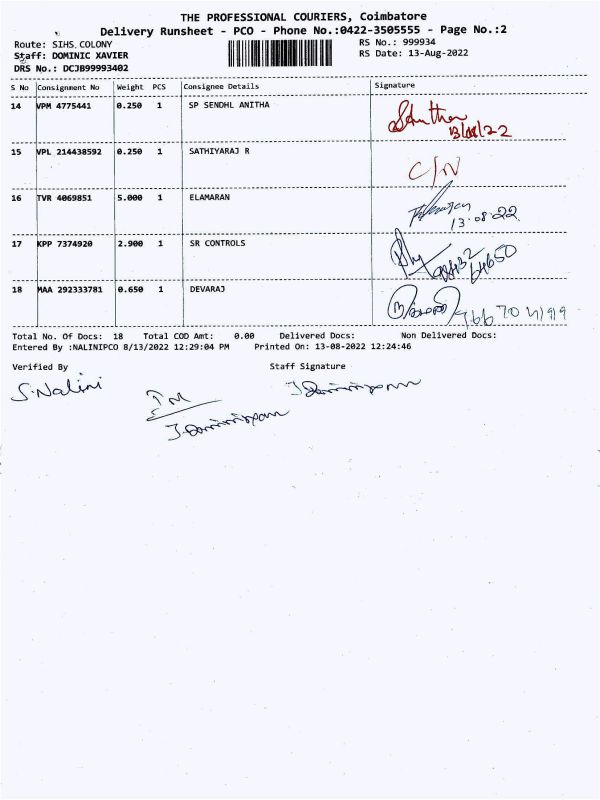 THE PROFESSIONAL COURIERS, Coimbatore
Delivery Runsheet - PCO - Phone No.:0422-3505555 - Page No.:2
Route: SIHS COLONY
RS No.: 999934
Staff: DOMINIC XAVIER
RS Date: 13-Aug-2022
DRS No.: DCJB99993402
S No Consignment No Weight PCS Consignee Details Signature
14 VPM 4775441 0.250 1 SP SENDHL ANITHA
13/08/22
15 VPL 214438592 0.250 1 SATHIYARAJ R
C/N
16 TVR 4069851 5.000 1 ELAMARAN
13.08.22
17 KPP 7374920 2.900 1 SR CONTROLS
18 MAA 292333781 0.650 1 DEVARAJ
Total No. Of Docs: 18 Total COD Amt: 0.00 Delivered Docs: Non Delivered Docs:
Entered By :NALINIPCO 8/13/2022 12:29:04 PM Printed On: 13-08-2022 12:24:46
Verified By Staff Signature
S.Nalini